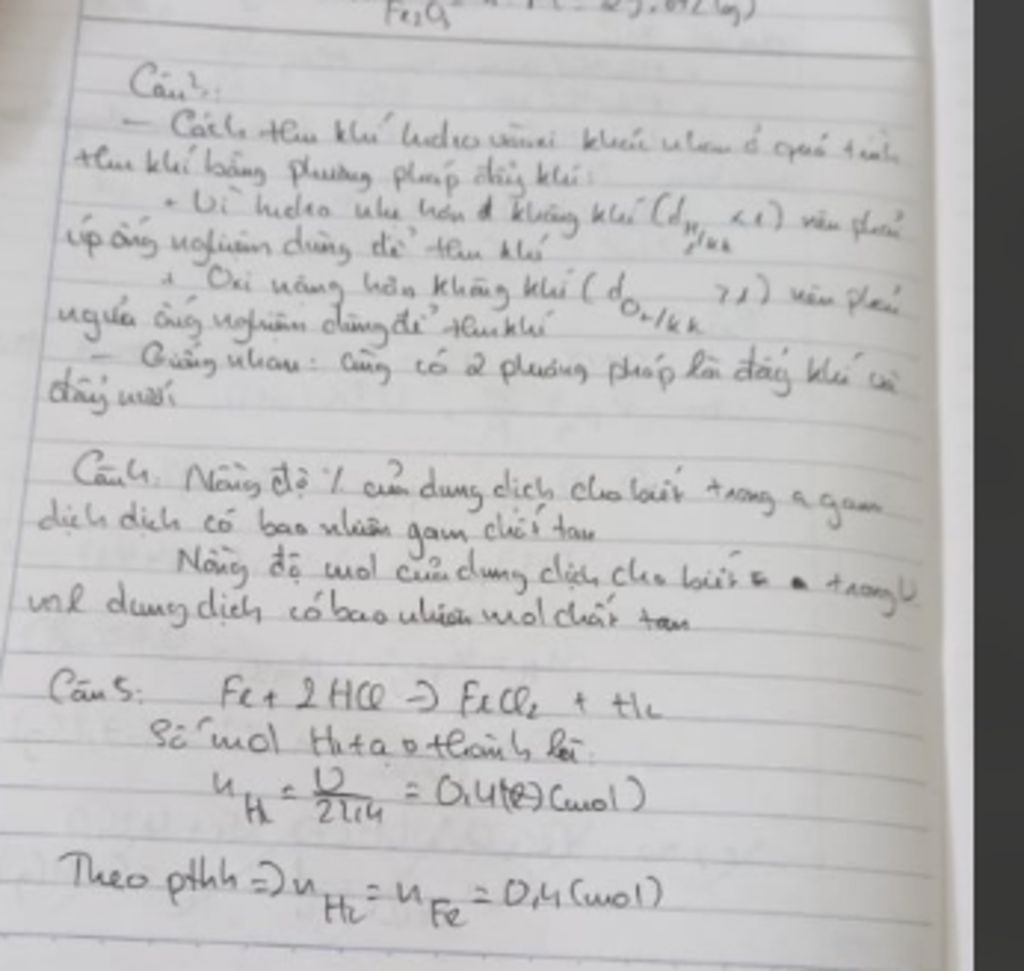 Fe₂O₃
Câu 3:
- Cách thu khí hidro và oxi khác nhau ở quá trình
thu khí bằng phương pháp đẩy khí:
+ Vì hidro nhẹ hơn không khí (d H₂/kk < 1) nên phải
úp ống nghiệm dùng để thu khí
+ Oxi nặng hơn không khí (d O₂/kk > 1) nên phải
ngửa ống nghiệm dùng để thu khí
- Giống nhau: cũng có 2 phương pháp là đẩy khí và
đẩy nước
Câu 4: Nồng độ % của dung dịch cho biết trong gam
dịch dịch có bao nhiêu gam chất tan
Nồng độ mol của dung dịch cho biết trong V
dung dịch có bao nhiêu mol chất tan
Câu 5: Fe + 2HCl => FeCl₂ + H₂
Số mol H₂ tạo thành là:
n H₂ = V/22,4 = 0,4 (mol)
Theo pthh => n H₂ = n Fe = 0,4 (mol)